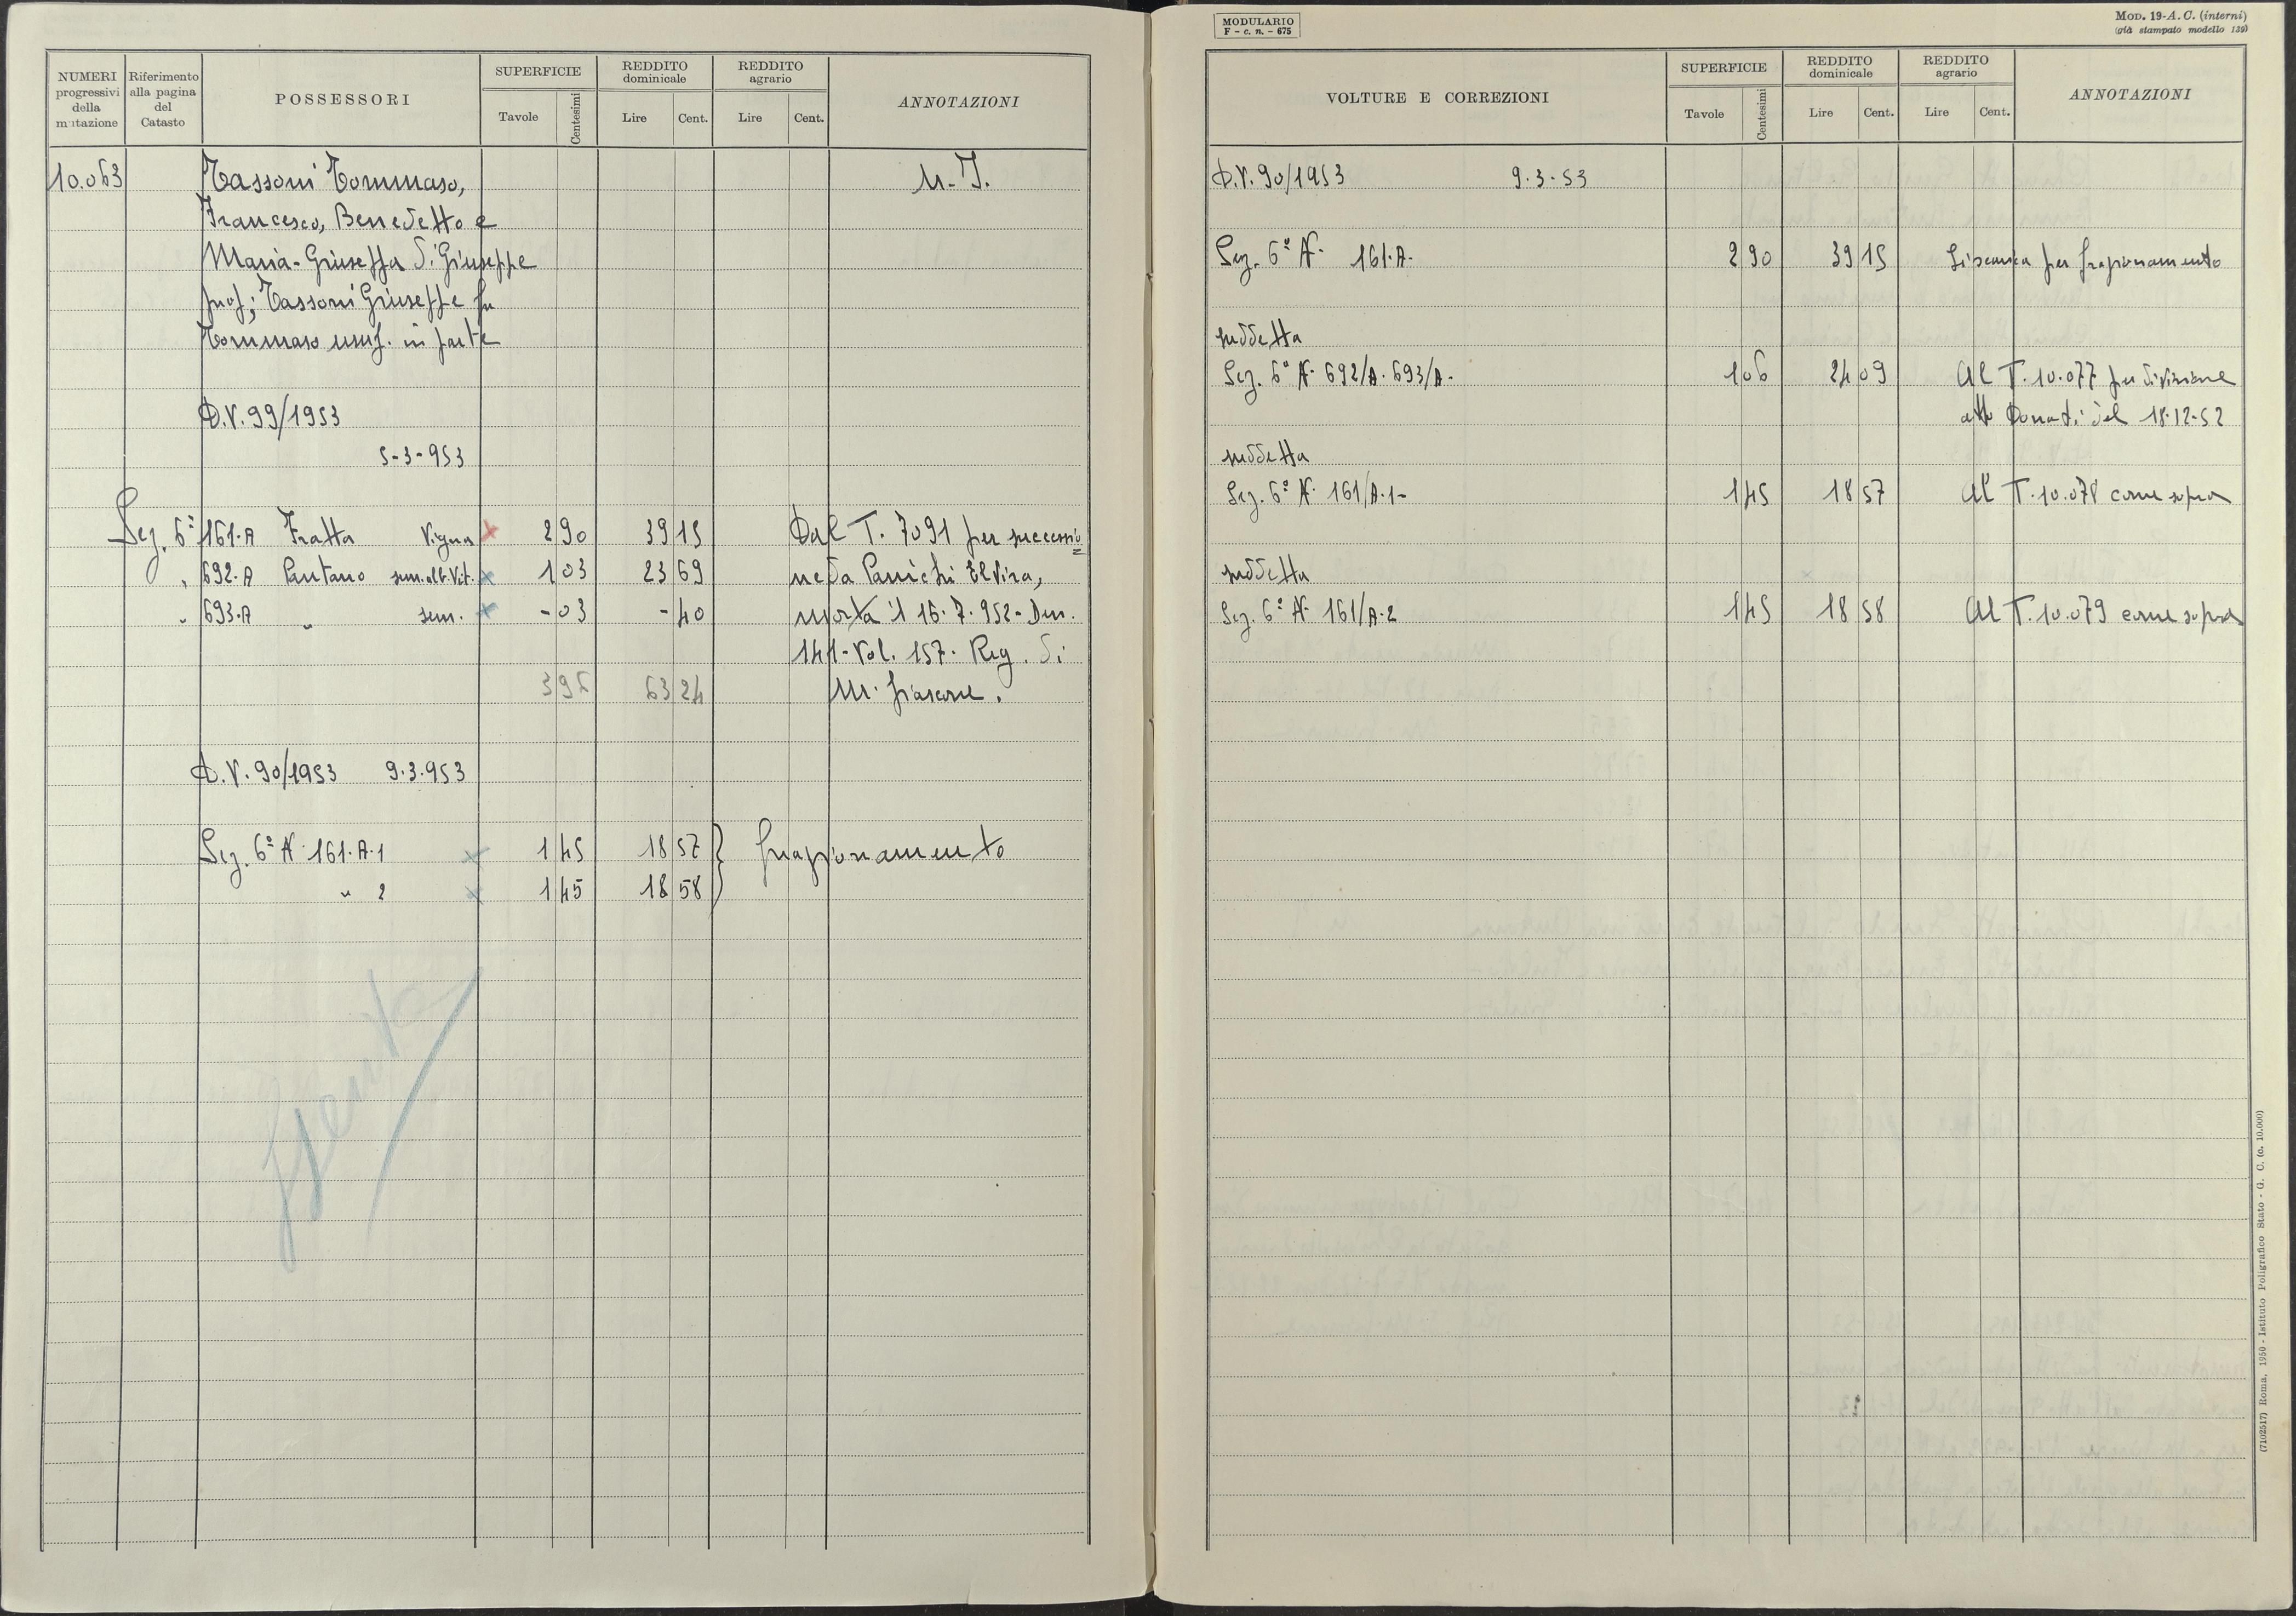 NUMERI progressivi della mutazione | Riferimento alla pagina del Catasto | POSSESSORI | SUPERFICIE Tavole Centesimi | REDDITO dominicale Lire Cent. | REDDITO agrario Lire Cent. | ANNOTAZIONI
10.063 Tassoni Tommaso, M.I.
Francesco, Benedetto e
Maria-Giuseppa di Giuseppe
prop; Tassoni Giuseppe fu
Tommaso usuf. in parte
D.V. 99/1953
5-3-953
Sez. 6ª 161-A Fratta Vigna x 2 90 39 15 Dal T. 7091 per successio
" 692-A Pantano sem. alb. Vit. x 1 03 23 69 ne da Panichi Elvira,
" 693-A " sem. x - 03 - 40 morta il 16-7-952- Den.
141-Vol. 157- Reg. di
3 96 63 24 M. fiascone.
D.V. 90/1953 9.3.953
Sez. 6ª N. 161-A-1 x 1 45 18 57 } frazionamento
" 2 x 1 45 18 58
MODULARIO
F - c. n. - 675
MOD. 19-A. C. (interni)
(già stampato modello 139)
VOLTURE E CORREZIONI | SUPERFICIE Tavole Centesimi | REDDITO dominicale Lire Cent. | REDDITO agrario Lire Cent. | ANNOTAZIONI
D.V. 90/1953 9-3-53
Sez. 6ª N. 161-A- 2 90 39 15 Si scarica per frazionamento
suddetta
Sez. 6ª N. 692/A-693/A- 1 06 24 09 Al T. 10.077 per divisione
atto Donati del 18-12-52
suddetta
Sez. 6ª N. 161/A-1- 1 45 18 57 Al T. 10.078 come sopra
suddetta
Sez. 6ª N. 161/A-2 1 45 18 58 Al T. 10.079 come sopra
(7102517) Roma, 1950 - Istituto Poligrafico Stato - G. C. (c. 10.000)